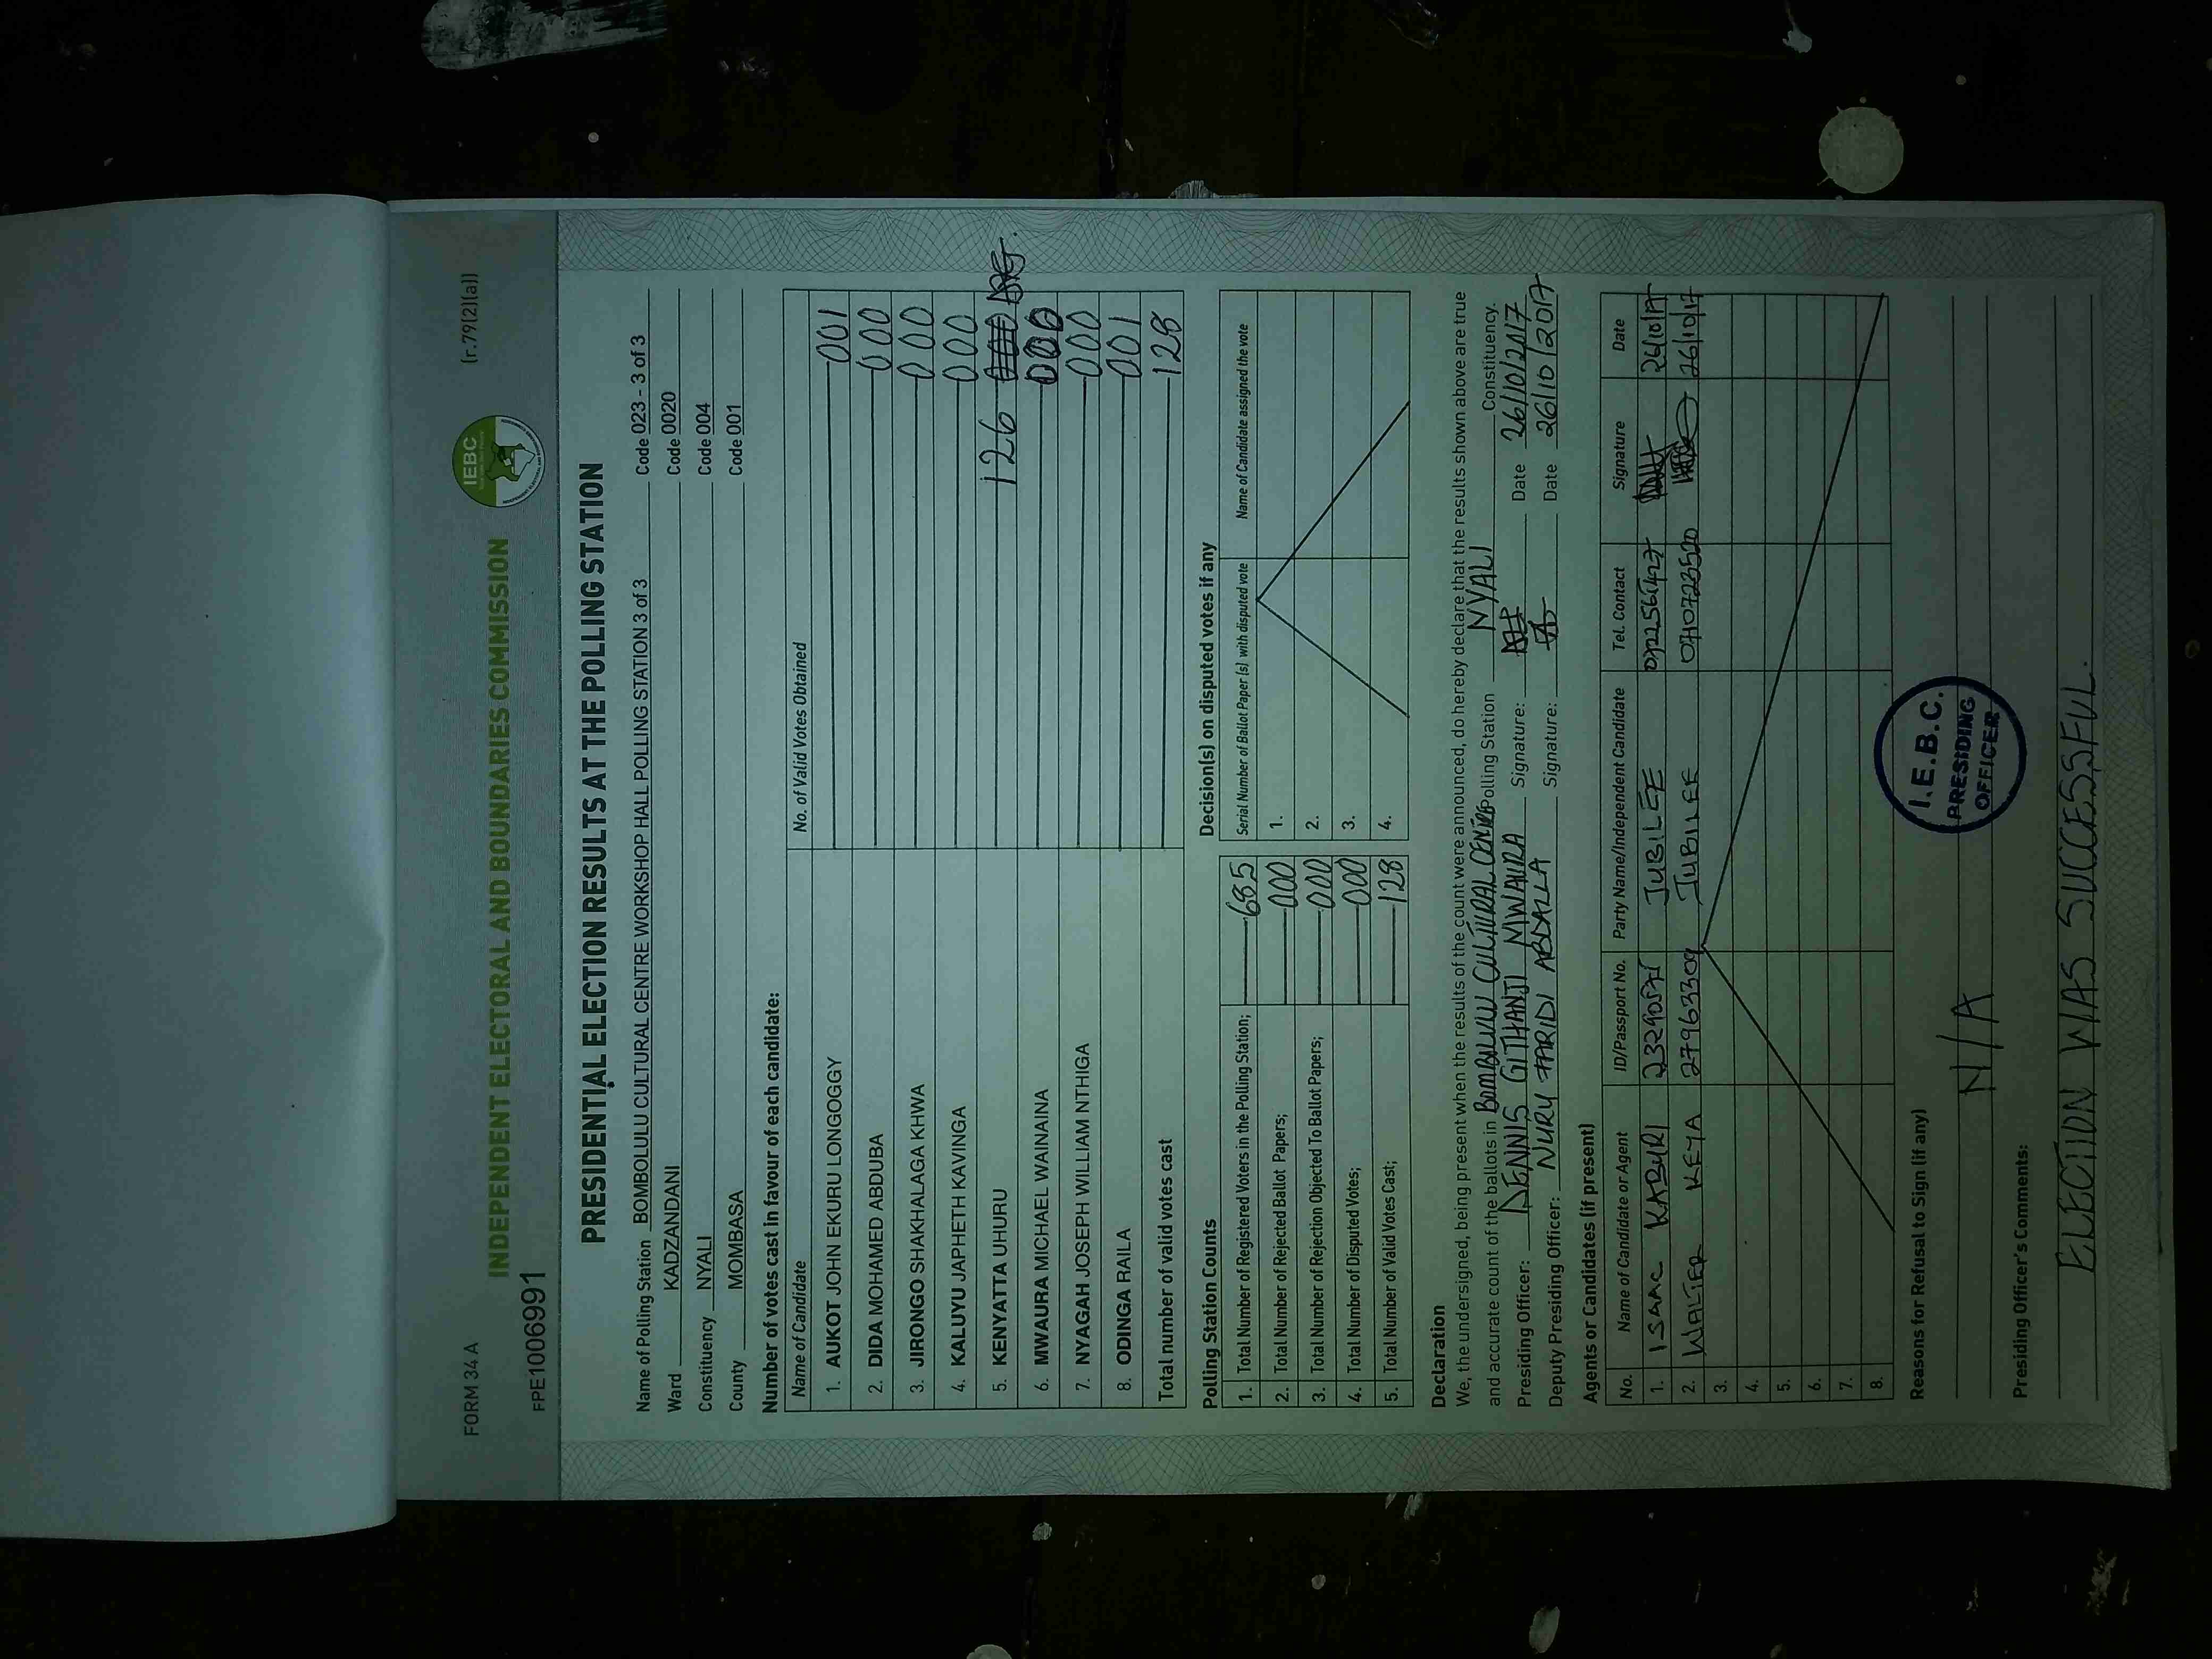 FORM 34 A
(r.79(2)(a))
FPE1006991
INDEPENDENT ELECTORAL AND BOUNDARIES COMMISSION
IEBC
PRESIDENTIAL ELECTION RESULTS AT THE POLLING STATION
Name of Polling Station BOMBOLULU CULTURAL CENTRE WORKSHOP HALL POLLING STATION 3 of 3 Code 023 - 3 of 3
Ward KADZANDANI Code 0020
Constituency NYALI Code 004
County MOMBASA Code 001
Number of votes cast in favour of each candidate:
Name of Candidate No. of Valid Votes Obtained
1. AUKOT JOHN EKURU LONGOGGY 001
2. DIDA MOHAMED ABDUBA 000
3. JIRONGO SHAKHALAGA KHWA 000
4. KALUYU JAPHETH KAVINGA 000
5. KENYATTA UHURU 126
6. MWAURA MICHAEL WAINAINA 000
7. NYAGAH JOSEPH WILLIAM NTHIGA 000
8. ODINGA RAILA 001
Total number of valid votes cast 128
Polling Station Counts
1. Total Number of Registered Voters in the Polling Station; 685
2. Total Number of Rejected Ballot Papers; 000
3. Total Number of Rejection Objected To Ballot Papers; 000
4. Total Number of Disputed Votes; 000
5. Total Number of Valid Votes Cast; 128
Decision(s) on disputed votes if any
Serial Number of Ballot Paper (s) with disputed vote Name of Candidate assigned the vote
1.
2.
3.
4.
Declaration
We, the undersigned, being present when the results of the count were announced, do hereby declare that the results shown above are true
and accurate count of the ballots in BOMBULULU CULTURAL CENTRE Polling Station NYALI Constituency.
Presiding Officer: DENNIS GITHANJI MWAURA Signature: Date 26/10/2017
Deputy Presiding Officer: NURU FARIDI ABDALLA Signature: Date 26/10/2017
Agents or Candidates (if present)
No. Name of Candidate or Agent ID/Passport No. Party Name/Independent Candidate Tel. Contact Signature Date
1. ISAAC KABURI JUBILEE 26/10/17
2. WALTER KEYA 27963309 JUBILEE 0710723520 26/10/17
3.
4.
5.
6.
7.
8.
Reasons for Refusal to Sign (if any)
N/A
I.E.B.C.
PRESIDING
OFFICER
Presiding Officer's Comments:
ELECTION WAS SUCCESSFUL.